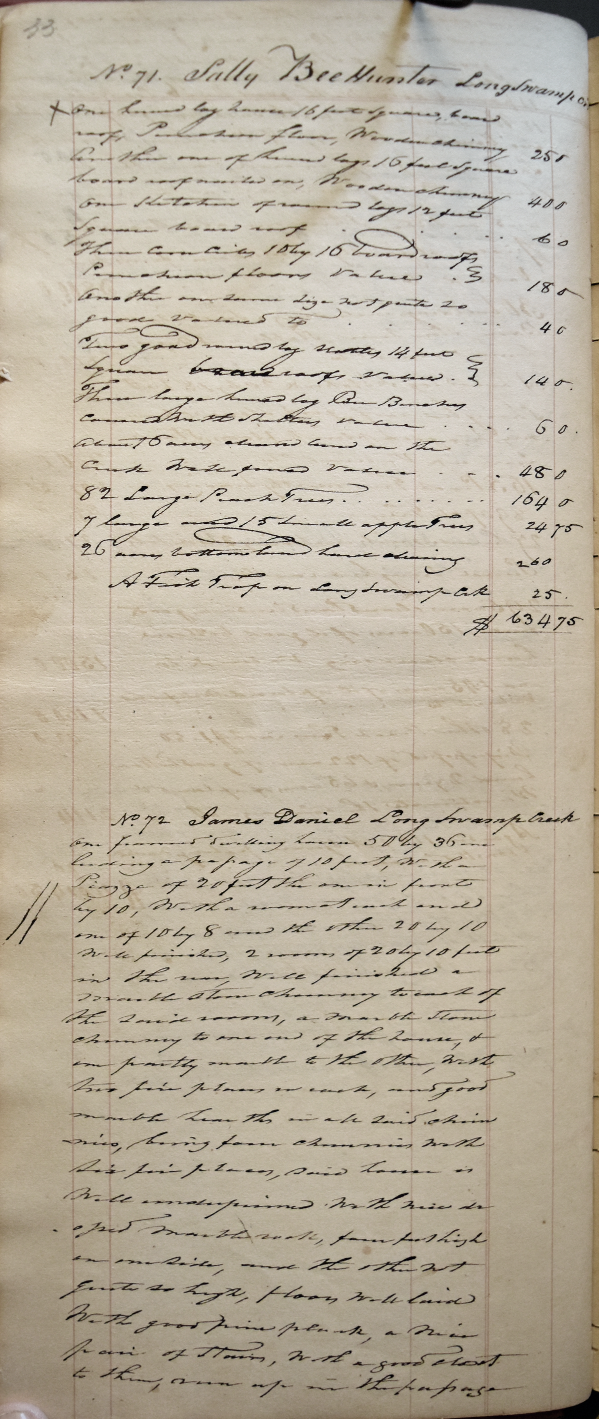 33
No. 71. Sally BeeHunter LongSwamp Cr
One hewed log house 16 feet Square, board
roof, Puncheon floor, Wooden chimney 25 0
Another one of hewed logs 16 feet Square
board roof nailed on, Wooden chimney 40 0
One Kitchen of round logs 12 feet
Square board roof 6 0
Three Corn Cribs 10 by 16 board roofs
Puncheon floors Valued 18 0
Another one same size not quite so
good Valued to 4 0
Two good round log 14 feet
Square roofs Valued 14 0.
Three large hewed log Bee Benches
Covered with Shelters Valued 6 0.
about 6 acres cleared land on the
Creek Well fenced Valued 48 0
82 Large Peach Trees 164 0
7 large and 15 small apple Trees 24 75
26 acres bottom land hard clearing 260
A Fish Trap on Long Swamp Crk 25.
$ 634 75
No. 72 James Daniel Long Swamp Creek
One framed dwelling house 50 by 36 in
luding a passage of 10 feet, With a
Piazza of 20 feet the one in front
by 10, With a room at each end
one of 10 by 8 and the other 20 by 10
Well finished, 2 rooms of 20 by 10 feet
in the rear, Well finished a
marble Stone Chimney to each of
the said rooms, a marble Stone
chimney to one end of the house, &
one partly marble to the other, With
two fire places in each, and good
marble hearths in all said chim
nies, being four Chimnies With
Six fire places, said house is
Well underpinned With nice dr
essed marble rock, four feet high
on one side, and the other not
quite so high, floors Well laid
With good pine plank, a nice
pair of Stairs, With a good closet
to them, run up in the passage